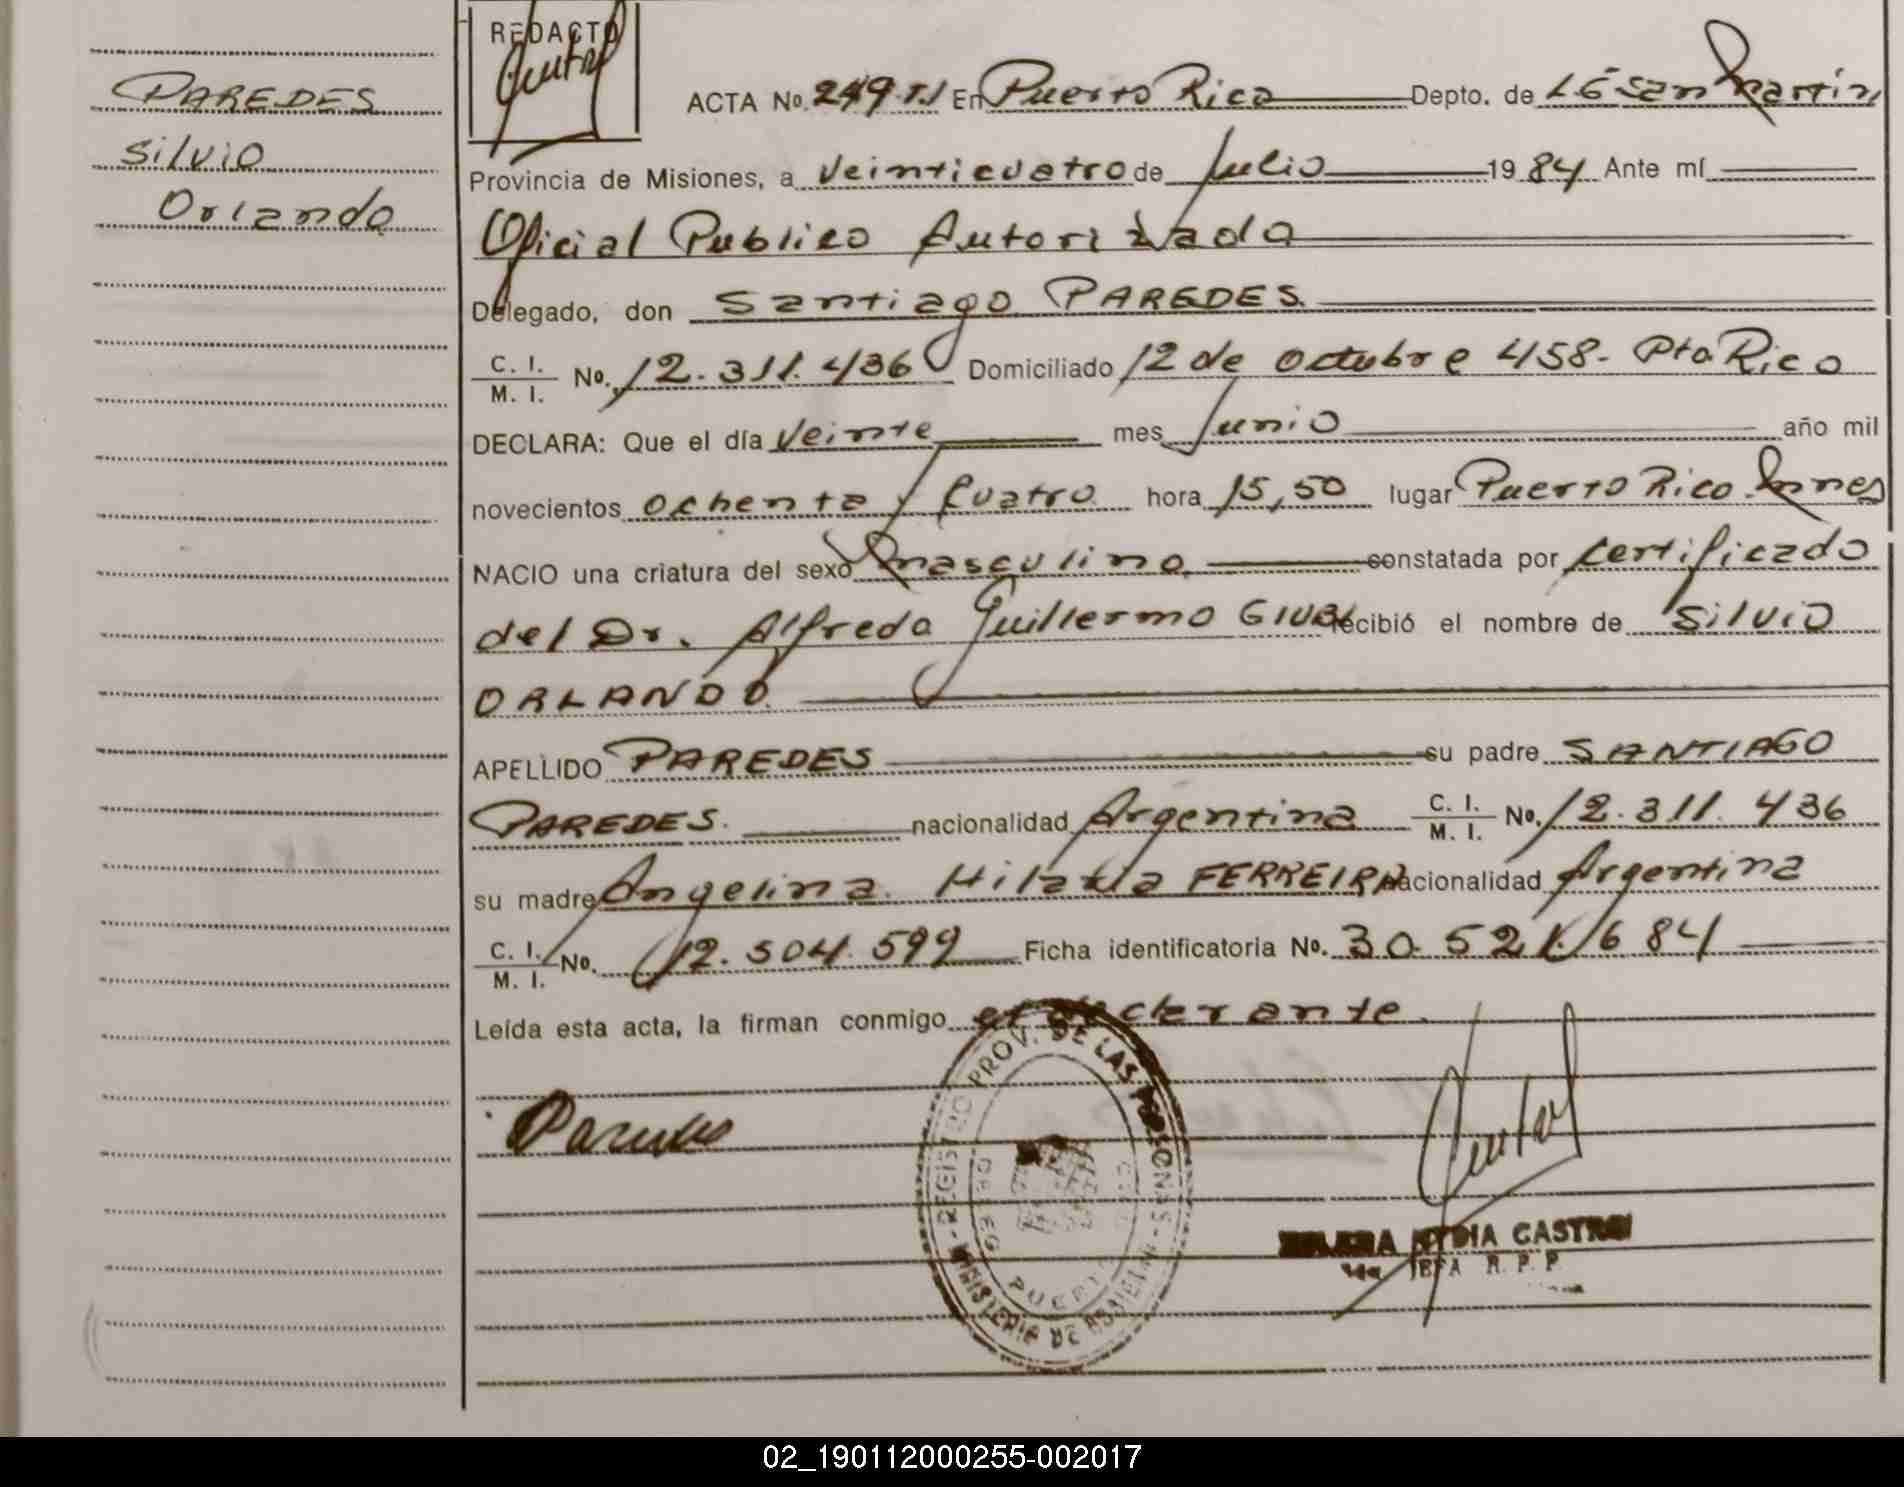 PAREDES
Silvio
Orlando
REDACTO
ACTA No. 249 T.I En Puerto Rico Depto. de L G San Martín,
Provincia de Misiones, a veinticuatro de Julio 1984 Ante mí
Oficial Publico Autorizada
Delegado, don Santiago PAREDES.
C. I. / M. I. No. 12.311.436 Domiciliado 12 de octubre 458- Pto Rico
DECLARA: Que el día Veinte mes Junio año mil
novecientos ochenta y Cuatro hora 15,50 lugar Puerto Rico Mnes
NACIO una criatura del sexo masculino constatada por certificado
del Dr. Alfredo Guillermo recibió el nombre de Silvio
ORLANDO.
APELLIDO PAREDES su padre SANTIAGO
PAREDES. nacionalidad Argentina C. I. / M. I. No. 12.311.436
su madre Angelina Hilaria FERREIRA nacionalidad Argentina
C. I. / M. I. No. 12.504.599 Ficha identificatoria No. 30.521.684
Leída esta acta, la firman conmigo el declarante.
REGISTRO PROV. DE LAS PERSONAS
Paredes
CASTRO
JEFA R. P. P.
02_190112000255-002017